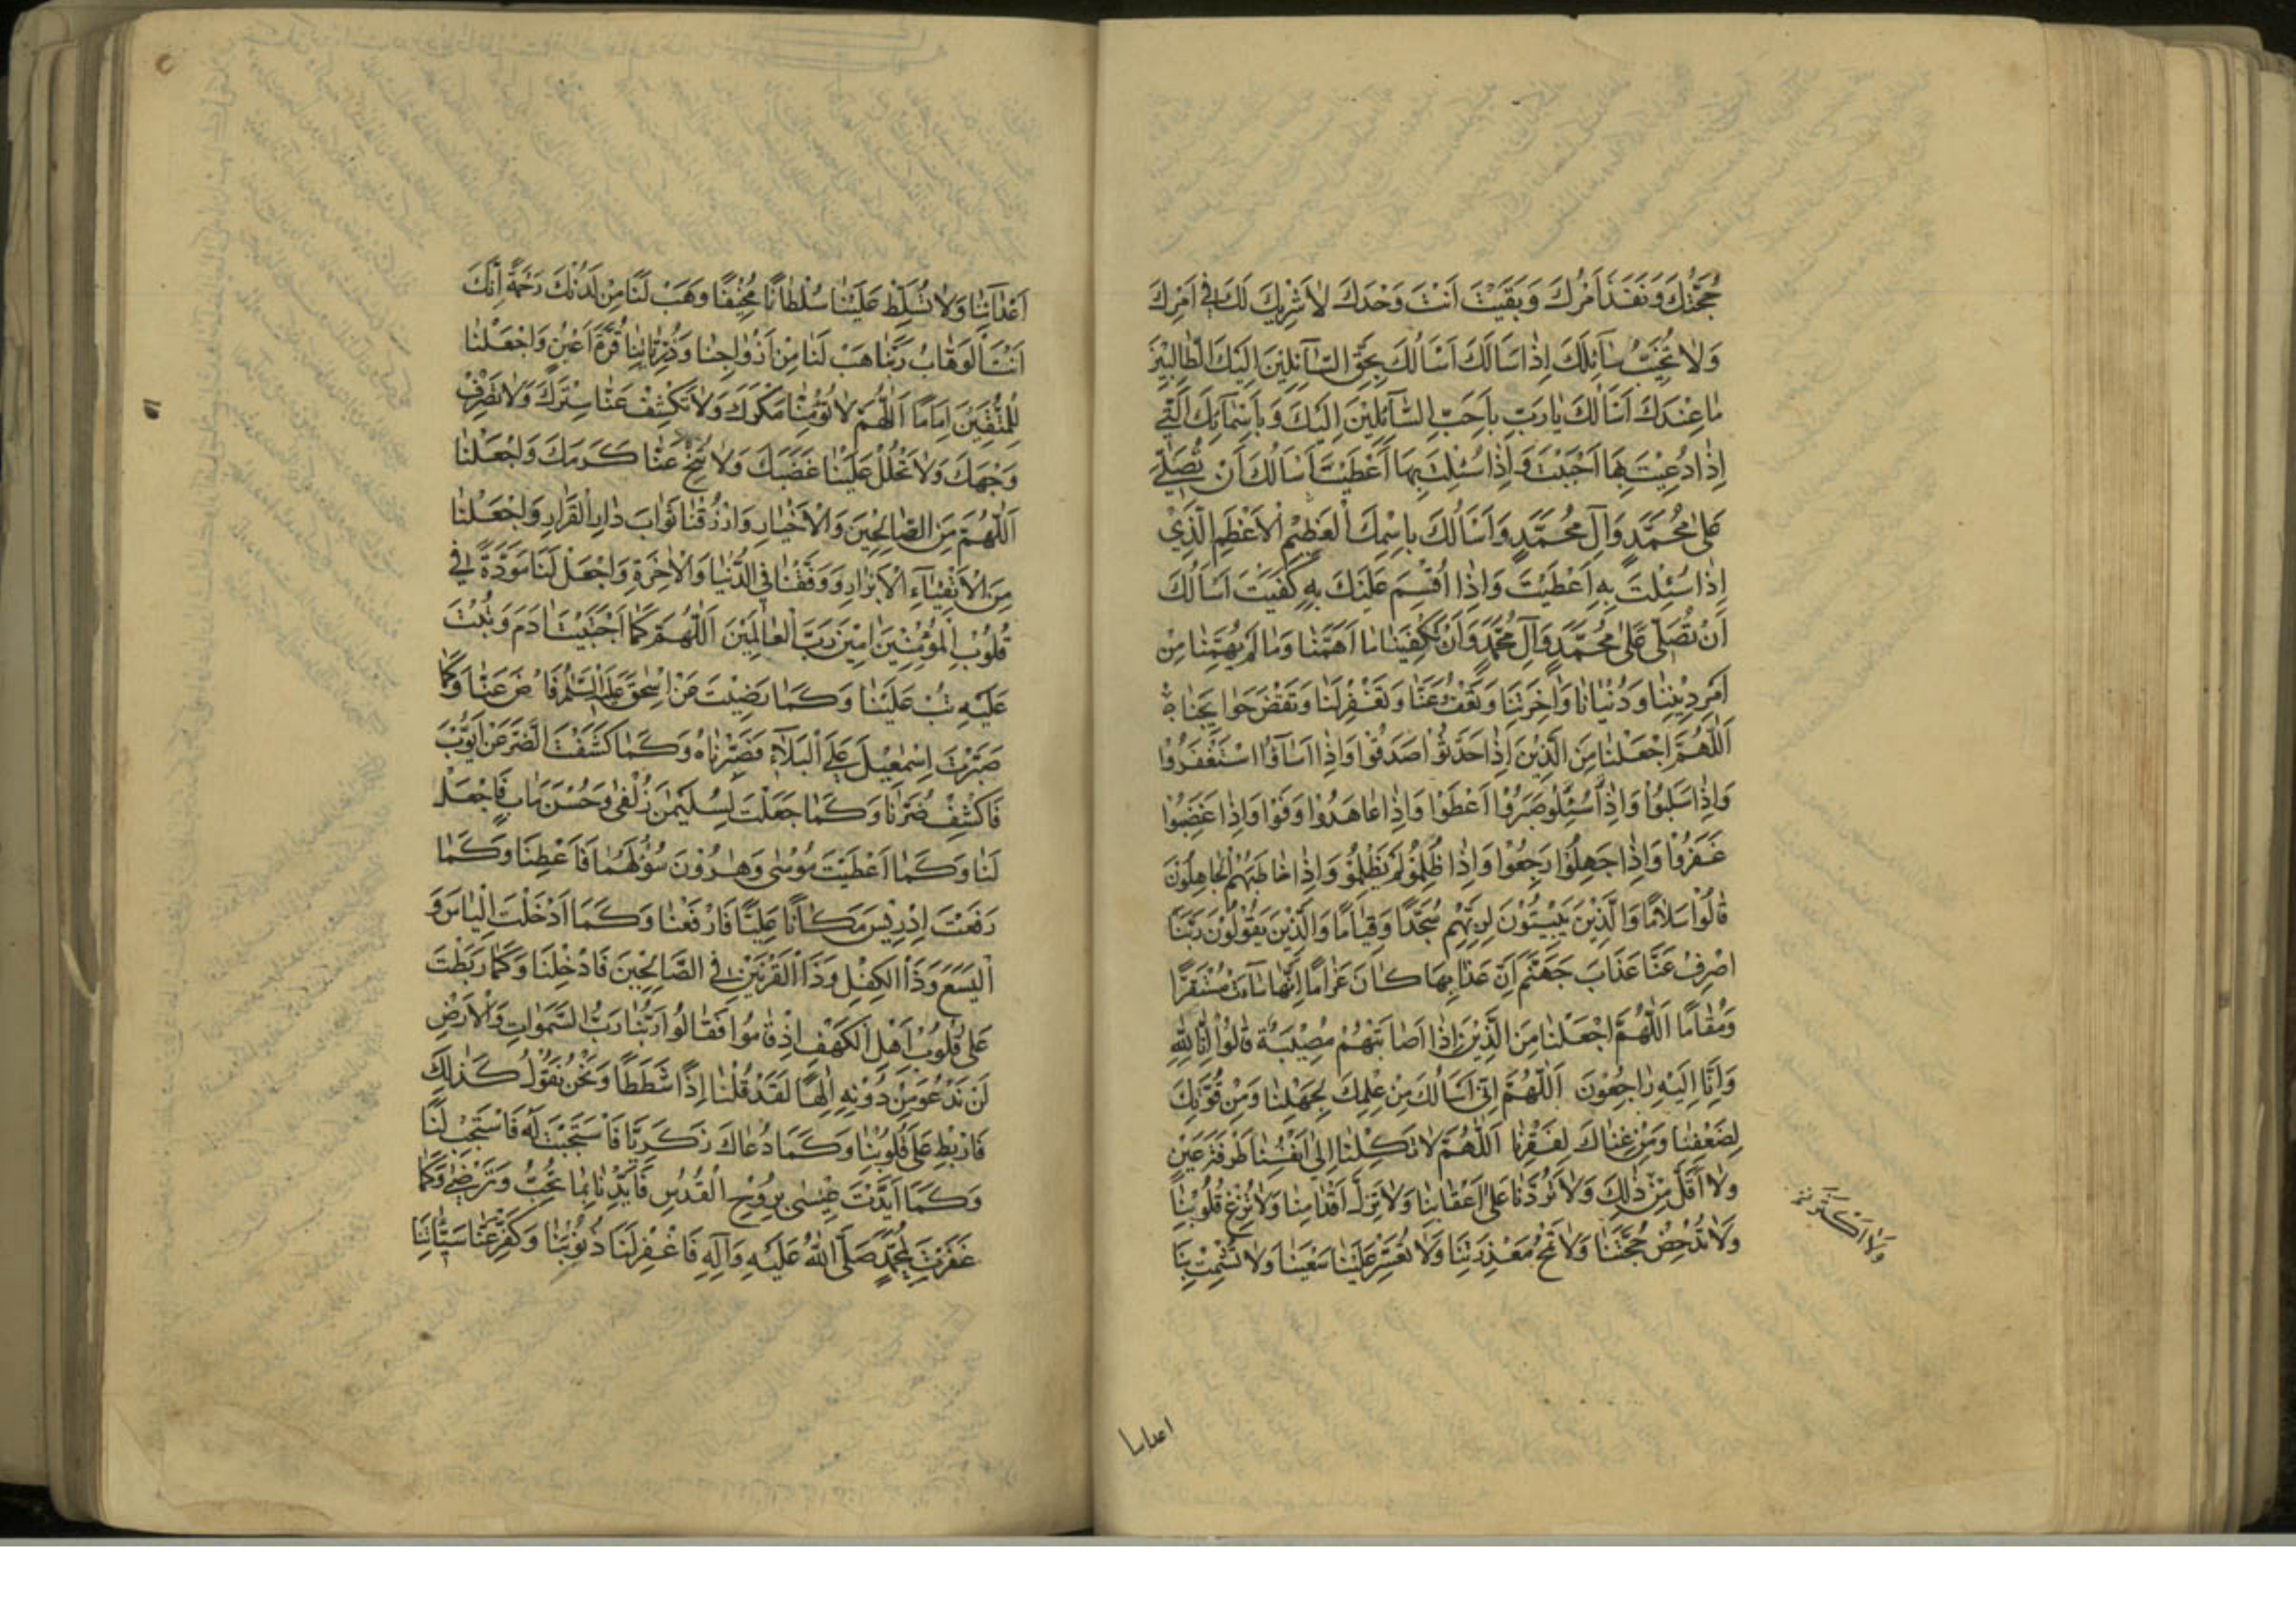 حُجَّتُكَ وَنَفَذَ اَمْرُكَ وَبَقَيْتَ اَنْتَ وَحْدَكَ لاٰ شَرِيكَ لَكَ فِي اَمْرِكَ
وَلاٰ تُخَيِّبُ سٰآئِلَكَ اِذٰا سَاَلَكَ اَسْاَلُكَ بِحَقِّ السّٰآئِلِينَ اِلَيْكَ الطّٰالِبِينَ
مٰا عِنْدَكَ اَسْاَلُكَ يٰا رَبِّ بِاَحَبِّ السّٰآئِلِيْنَ اِلَيْكَ وَبِاَسْمٰآئِكَ الَّتِي
اِذٰا دُعِيْتَ بِهٰا اَجَبْتَ وَاِذٰا سُئِلْتَ بِهٰا اَعْطَيْتَ اَسْاَلُكَ اَنْ تُصَلِّيَ
عَلىٰ مُحَمَّدٍ وَآلِ مُحَمَّدٍ وَاَسْاَلُكَ بِاسْمِكَ الْعَظِيْمِ الْاَعْظَمِ الَّذِيْ
اِذٰا سُئِلْتَ بِهِ اَعْطَيْتَ وَاِذٰا اُقْسِمَ عَلَيْكَ بِهِ كَفَيْتَ اَسْاَلُكَ
اَنْ تُصَلِّيَ عَلىٰ مُحَمَّدٍ وَآلِ مُحَمَّدٍ وَاَنْ تَكْفِيَنٰا مٰا اَهَمَّنٰا وَمٰا لَمْ يُهِمَّنٰا مِنْ
اَمْرِ دِيْنِنٰا وَدُنْيٰانٰا وَاٰخِرَتِنٰا وَتَعْفُ عَنّٰا وَتَغْفِرْ لَنٰا وَتَقْضِ حَوٰايِجَنٰا
اَللّٰهُمَّ اجْعَلْنٰا مِنَ الَّذِيْنَ اِذٰا حَدَّثُوْا صَدَقُوْا وَاِذٰا اَسٰآؤُا اسْتَغْفَرُوْا
وَاِذٰا سُلِبُوْا صَبَرُوْا وَاِذٰا عٰاهَدُوْا وَفَوْا وَاِذٰا غَضِبُوْا
غَفَرُوْا وَاِذٰا جَهِلُوْا رَجِعُوْا وَاِذٰا ظُلِمُوْا لَمْ يَظْلِمُوْ وَاِذٰا خٰاطَبَهُمُ الْجٰاهِلُوْنَ
قٰالُوْا سَلاٰمًا وَالَّذِيْنَ يَبِيْتُوْنَ لِرَبِّهِمْ سُجَّدًا وَقِيٰامًا وَالَّذِيْنَ يَقُوْلُوْنَ رَبَّنَا
اصْرِفْ عَنّٰا عَذٰابَ جَهَنَّمَ اِنَّ عَذٰابَهٰا كٰانَ غَرٰامًا اِنَّهٰا سٰاءَتْ مُسْتَقَرًّا
وَمُقٰامًا اَللّٰهُمَّ اجْعَلْنٰا مِنَ الَّذِيْنَ اِذٰا اَصٰابَتْهُمْ مُصِيْبَةٌ قٰالُوْا اِنّٰا لِلّٰهِ
وَاِنّٰا اِلَيْهِ رٰاجِعُوْنَ اَللّٰهُمَّ اِنِّي اَسْاَلُكَ مِنْ عِلْمِكَ لِجَهْلِنٰا وَمِنْ قُوَّتِكَ
لِضَعْفِنٰا وَمِنْ غِنٰاكَ لِفَقْرِنٰا اَللّٰهُمَّ لاٰ تَكِلْنٰا اِلىٰ اَنْفُسِنٰا طَرْفَةَ عَيْنٍ
وَلاٰ اَقَلَّ مِنْ ذٰلِكَ وَلاٰ تَرُدَّنٰا عَلىٰ اَعْقٰابِنٰا وَلاٰ تُزِلَّ اَقْدٰامَنٰا وَلاٰ تُزِغْ قُلُوْبَنٰا
وَلاٰ تُدْحِضْ حُجَّتَنٰا وَلاٰ تَمْحُ مَعْذِرَتَنٰا وَلاٰ تُعَسِّرْ عَلَيْنٰا سَعْيَنٰا وَلاٰ تُشْمِتْ بِنٰا
وَلاٰ اَكْثَرَ
اعداىنا
اَعْدٰآئَنٰا وَلاٰ تُسَلِّطْ عَلَيْنٰا سُلْطٰانًا مُخِيْفًا وَهَبْ لَنٰا مِنْ لَدُنْكَ رَحْمَةً اِنَّكَ
اَنْتَ الْوَهّٰابُ رَبَّنٰا هَبْ لَنٰا مِنْ اَزْوٰاجِنٰا وَذُرِّيّٰاتِنٰا قُرَّةَ اَعْيُنٍ وَاجْعَلْنٰا
لِلْمُتَّقِيْنَ اِمٰامًا اَللّٰهُمَّ لاٰ تُؤْمِنّٰا مَكْرَكَ وَلاٰ تَكْشِفْ عَنّٰا سِتْرَكَ وَلاٰ تَصْرِفْ
وَجْهَكَ وَلاٰ تَحْلُلْ عَلَيْنٰا غَضَبَكَ وَلاٰ تُنَحِّ عَنّٰا كَرَمَكَ وَاجْعَلْنٰا
اَللّٰهُمَّ مِنَ الصّٰالِحِيْنَ وَالْاَخْيٰارِ وَارْزُقْنٰا ثَوٰابَ دٰارِ الْقَرٰارِ وَاجْعَلْنٰا
مِنَ الْاَتْقِيٰآءِ الْاَبْرٰارِ وَوَفِّقْنٰا فِي الدُّنْيٰا وَالْاٰخِرَةِ وَاجْعَلْ لَنٰا مَوَدَّةً فِي
قُلُوْبِ الْمُؤْمِنِيْنَ اٰمِيْنَ رَبَّ الْعٰالَمِيْنَ اَللّٰهُمَّ كَمٰا اجْتَبَيْتَ اٰدَمَ وَتُبْتَ
عَلَيْهِ تُبْ عَلَيْنٰا وَكَمٰا رَضِيْتَ عَنْ اِسْحٰقَ عَلَيْهِ السَّلٰمُ فَارْضَ عَنّٰا وَكَمٰا
صَبَّرْتَ اِسْمٰعِيْلَ عَلَى الْبَلاٰءِ فَصَبِّرْنٰاهُ وَكَمٰا كَشَفْتَ الضُّرَّ عَنْ اَيُّوْبَ
فَاكْشِفْ ضُرَّنٰا وَكَمٰا جَعَلْتَ لِسُلَيْمٰنَ زُلْفىٰ وَحُسْنَ مَاٰبٍ فَاجْعَلْ
لَنٰا وَكَمٰا اَعْطَيْتَ مُوْسىٰ وَهٰرُوْنَ سُؤْلَهُمٰا فَاَعْطِنٰا وَكَمٰا
رَفَعْتَ اِدْرِيْسَ مَكٰانًا عَلِيًّا فَارْفَعْنٰا وَكَمٰا اَدْخَلْتَ اِلْيٰاسَ وَ
الْيَسَعَ وَذَا الْكِفْلِ وَذَا الْقَرْنَيْنِ فِي الصّٰالِحِيْنَ فَادْخِلْنٰا وَكَمٰا رَبَطْتَ
عَلىٰ قُلُوْبِ اَهْلِ الْكَهْفِ اِذْ قٰامُوْا فَقٰالُوْا رَبُّنٰا رَبُّ السَّمٰوٰاتِ وَالْاَرْضِ
لَنْ نَدْعُوَ مِنْ دُوْنِهِ اِلٰهًا لَقَدْ قُلْنٰا اِذًا شَطَطًا وَنَحْنُ نَقُوْلُ كَذٰلِكَ
فَارْبِطْ عَلىٰ قُلُوْبِنٰا وَكَمٰا دَعٰاكَ زَكَرِيّٰا فَاسْتَجَبْتَ لَهُ فَاسْتَجِبْ لَنٰا
وَكَمٰا اَيَّدْتَ عِيْسىٰ بِرُوْحِ الْقُدُسِ فَاَيِّدْنٰا بِمٰا تُحِبُّ وَتَرْضىٰ وَكَمٰا
غَفَرْتَ لِمُحَمَّدٍ صَلَّى اللّٰهُ عَلَيْهِ وَآلِهِ فَاغْفِرْ لَنٰا ذُنُوْبَنٰا وَكَفِّرْ عَنّٰا سَيِّئٰاتِنٰا